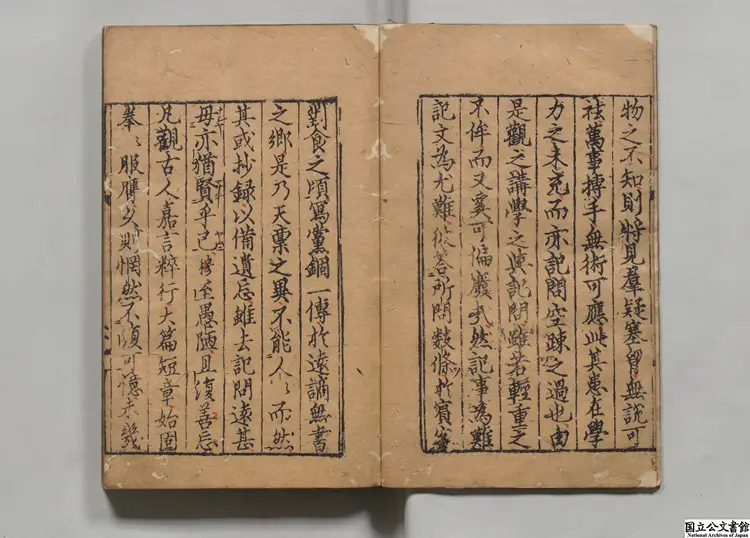 物之不知則將見羣疑塞胷無説可
祛萬事搏手無術可應此其患在學
力之未充而亦記問空踈之過也由
是觀之講學之與記問雖若輕重之
不侔而又奚可偏廢哉然記事為難
記文為尤難從容所問數條於賔客
對食之頃寫黨錮一傳於遠謫無書
之鄉是乃天禀之異不能人〻而然
其或抄録以備遺忘雖去記問遠甚
毋亦猶賢乎已 至愚陋且復善忘
凡觀古人嘉言粹行大篇短章始固
拳〻服膺久則惘然不復可憶未幾
国立公文書館
National Archives of Japan